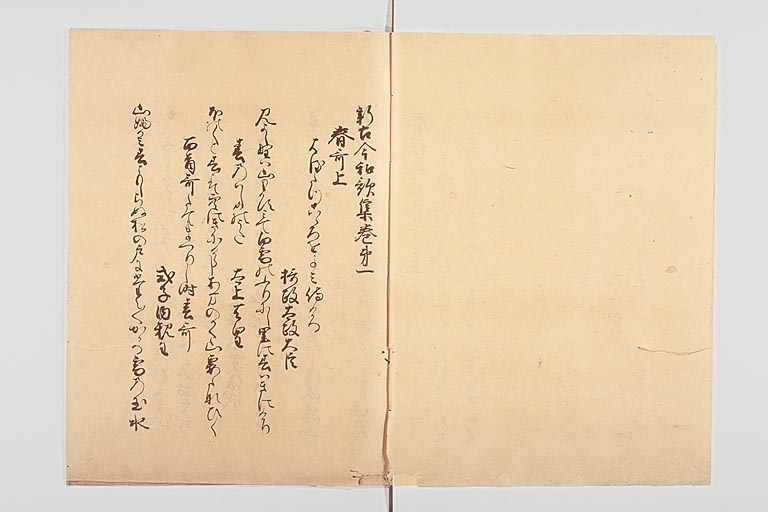 新古今和歌集巻第一
春哥上
春たつこゝろをよみ侍ける
摂政太政大臣
みよし野は山もかすみて白雪のふりにし里に春はきにけり
春のはしめのうた
太上天皇
ほの〱と春こそ空にきにけらしあまのかく山霞たなひく
百首哥たてまつりし時春哥
式子内親王
山ふかみ春ともしらぬ松の戸にたえ〱かゝる雪の玉水